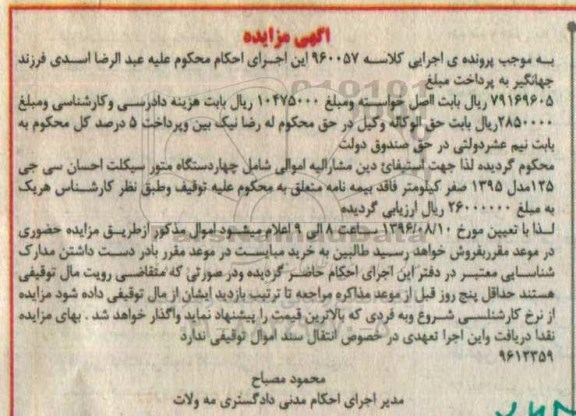 آگهی مزایده
به موجب پرونده ی اجرایی کلاسه ۹۶۰۰۵۷ این اجرای احکام محکوم علیه عبد الرضا اسدی فرزند
جهانگیر به پرداخت مبلغ
۷۹۱۶۹۶۰۵ ریال بابت اصل خواسته ومبلغ ۱۰۴۷۵۰۰۰ ریال بابت هزینه دادرسی وکارشناسی ومبلغ
۲۸۵۰۰۰۰ریال بابت حق الوکاله وکیل در حق محکوم له رضا نیک بین وپرداخت ۵ درصد کل محکوم به
بابت نیم عشردولتی در حق صندوق دولت
محکوم گردیده لذا جهت استیفائ دین مشارالیه اموالی شامل چهاردستگاه متور سیکلت احسان سی جی
۱۲۵مدل ۱۳۹۵ صفر کیلومتر فاقد بیمه نامه متعلق به محکوم علیه توقیف وطبق نظر کارشناس هریک
به مبلغ ۲۶۰۰۰۰۰۰ ریال ارزیابی گردیده
لذا با تعیین مورخ ۱۳۹۶/۰۸/۱۰ ساعت ۸ الی ۹ اعلام میشود اموال مذکور ازطریق مزایده حضوری
در موعد مقرربفروش خواهد رسید طالبین به خرید مبایست در موعد مقرر بادر دست داشتن مدارک
شناسایی معتبر در دفتر این اجرای احکام حاضر گردیده ودر صورتی که متقاضی رویت مال توقیفی
هستند حداقل پنج روز قبل از موعد مذاکره مراجعه تا ترتیب بازدید ایشان از مال توقیفی داده شود مزایده
از نرخ کارشناسی شروع وبه فردی که بالاترین قیمت را پیشنهاد نماید واگذار خواهد شد . بهای مزایده
نقدا دریافت واین اجرا تعهدی در خصوص انتقال سند اموال توقیفی ندارد
۹۶۱۲۳۵۹
محمود مصباح
مدیر اجرای احکام مدنی دادگستری مه ولات